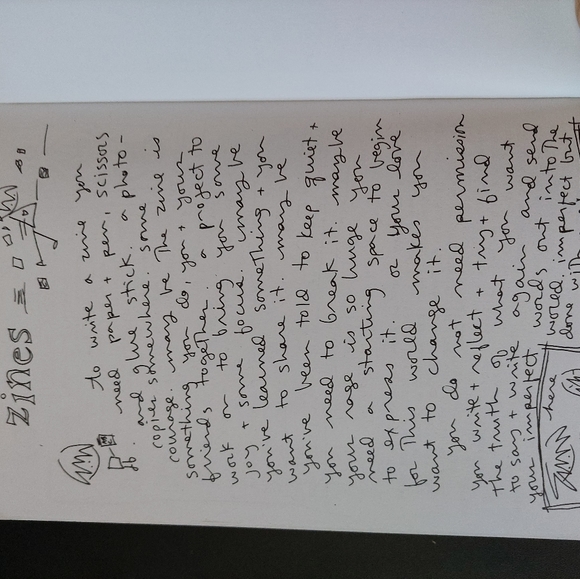 zines =
to write a zine you
need paper + pen, scissors
and glue stick. a photo-
copier somewhere. some
courage. maybe the zine is
something you do, you + your
friends together. a project to
work on to bring you some
joy + some focus. maybe
you've learned something + you
want to share it. maybe
you've been told to keep quiet +
you need to break it. maybe
your rage is so huge you
need a starting space to begin
to express it. or your love
for this world makes you
want to change it.
you do not need permission
you write + reflect + try + find
the truth of what you want
to say + write again and send
your imperfect words out into the
here world imperfect but
done with